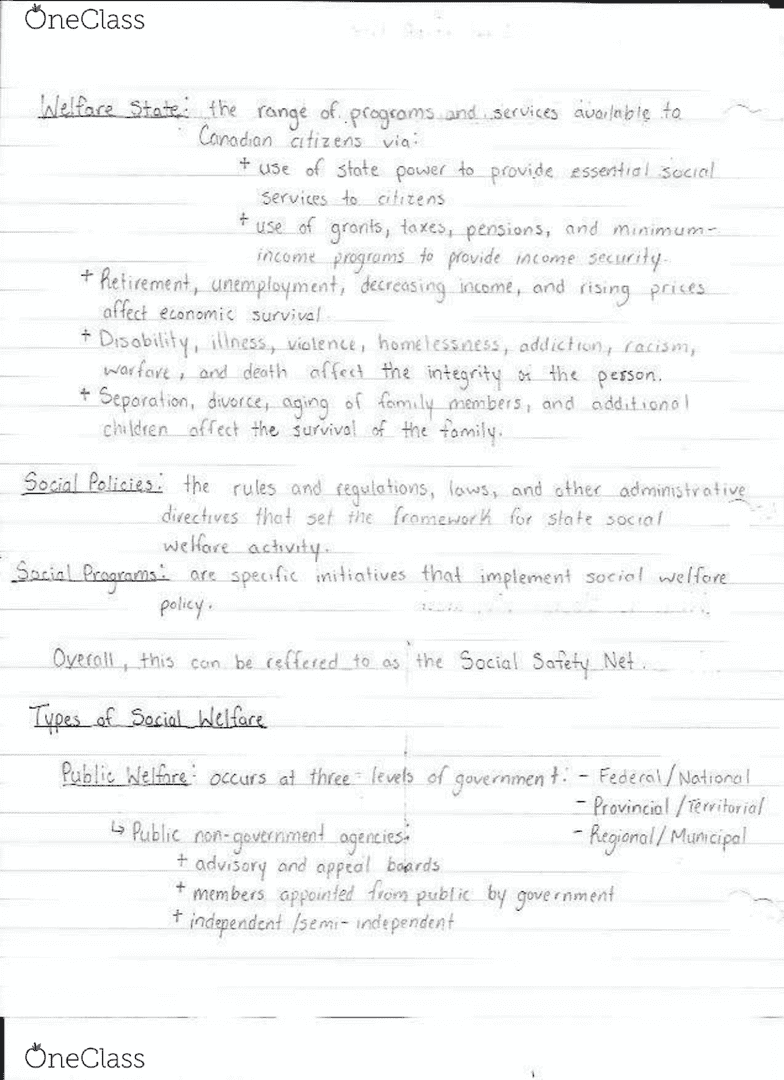 OneClass
Welfare State: the range of programs and services available to
Canadian citizens via:
+ use of state power to provide essential social
services to citizens
+ use of grants, taxes, pensions, and minimum-
income programs to provide income security.
+ Retirement, unemployment, decreasing income, and rising prices
affect economic survival.
+ Disability, illness, violence, homelessness, addiction, racism,
warfare, and death affect the integrity of the person.
+ Separation, divorce, aging of family members, and additional
children affect the survival of the family.
Social Policies: the rules and regulations, laws, and other administrative
directives that set the framework for state social
welfare activity.
Social Programs: are specific initiatives that implement social welfare
policy.
Overall, this can be reffered to as the Social Safety Net.
Types of Social Welfare
Public Welfare: occurs at three levels of government: - Federal/National
- Provincial/Territorial
↳ Public non-government agencies: - Regional/Municipal
+ advisory and appeal boards
+ members appointed from public by government
+ independent/semi-independent
OneClass